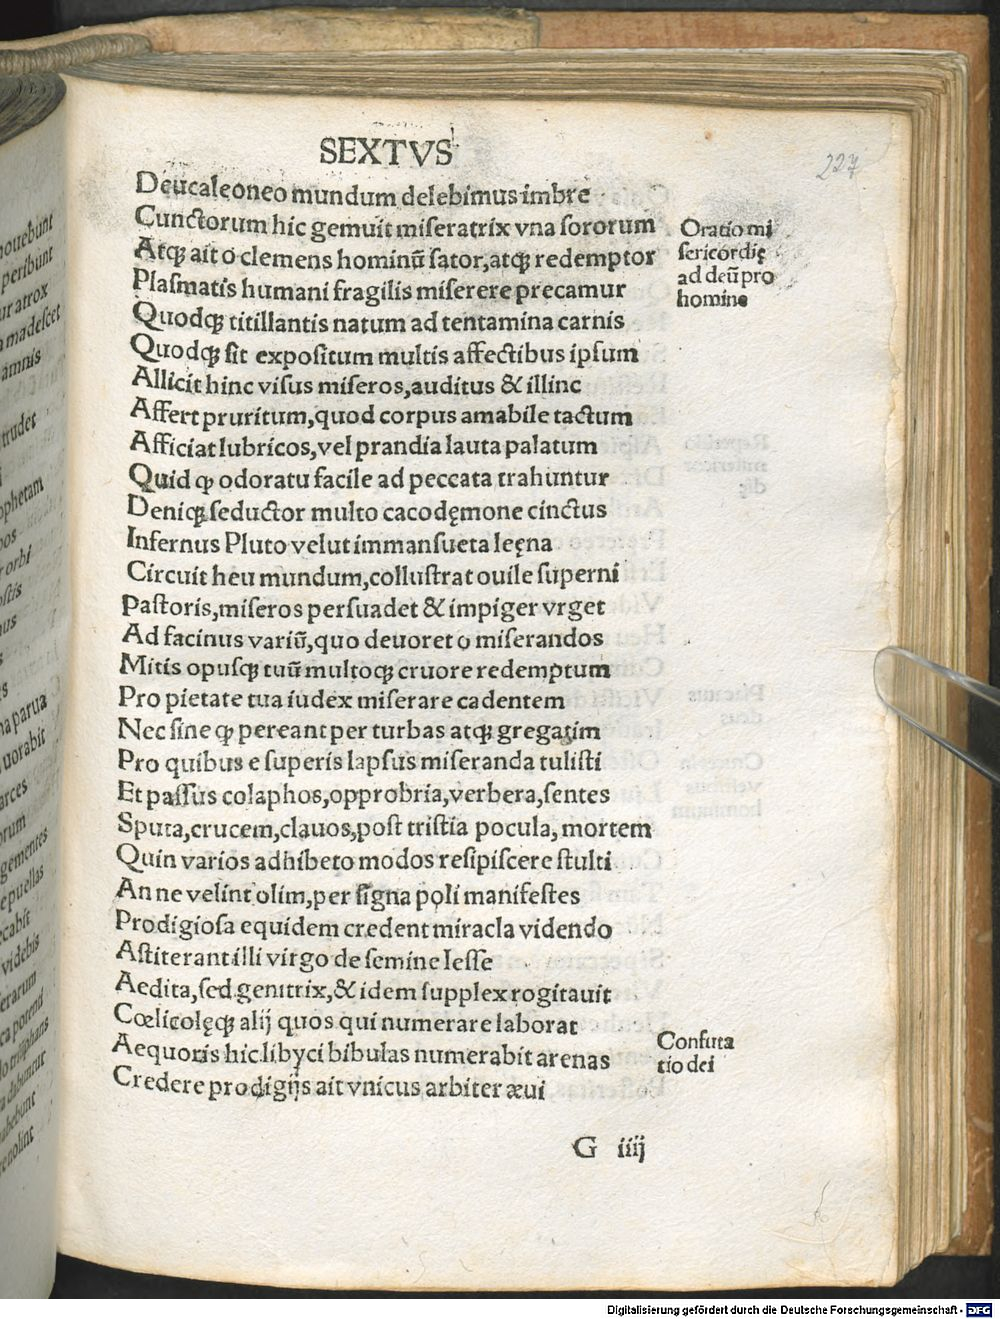 SEXTVS
227
Deucaleoneo mundum delebimus imbre
Cunctorum hic gemuit miſeratrix vna ſororum
Atqꝫ ait o clemens hominū ſator,atqꝫ redemptor
Plaſmatis humani fragilis miſerere precamur
Quodqꝫ titillantis natum ad tentamina carnis
Quodqꝫ ſit expoſitum multis affectibus ipſum
Allicit hinc viſus miſeros,auditus & illinc
Affert pruritum,quod corpus amabile tactum
Afficiat lubricos,vel prandia lauta palatum
Quid ꝙ odoratu facile ad peccata trahuntur
Deniqꝫ ſeductor multo cacodęmone cinctus
Infernus Pluto velut immanſueta leęna
Circuit heu mundum,colluſtrat ouile ſuperni
Paſtoris,miſeros perſuadet & impiger vrget
Ad facinus variū,quo deuoret o miſerandos
Mitis opuſqꝫ tuū multoqꝫ cruore redemptum
Pro pietate tua iudex miſerare cadentem
Nec ſine ꝙ pereant per turbas atqꝫ gregatim
Pro quibus e ſuperis lapſus miſeranda tuliſti
Et paſſus colaphos,opprobria,verbera,ſentes
Sputa,crucem,clauos,poſt triſtia pocula, mortem
Quin varios adhibeto modos reſipiſcere ſtulti
An ne velint olim,per ſigna poli manifeſtes
Prodigioſa equidem credent miracla videndo
Aſtiterant illi virgo de ſemine Ieſſe
Aedita,ſed genitrix,& idem ſupplex rogitauit
Cœlicolęqꝫ alij quos qui numerare laborat
Aequoris hic libyci bibulas numerabit arenas
Credere prodigijs ait vnicus arbiter ævi
Oratio mi
ſericordię
ad deū pro
homine
Confuta
tio dei
G iiij
ouebunt
peribunt
ur atrox
madeſcet
amnis
trudet
ophetam
orbi
parua
uorabit
arces
gementes
puellas
videbis
Digitalisierung gefördert durch die Deutsche Forschungsgemeinschaft - DFG